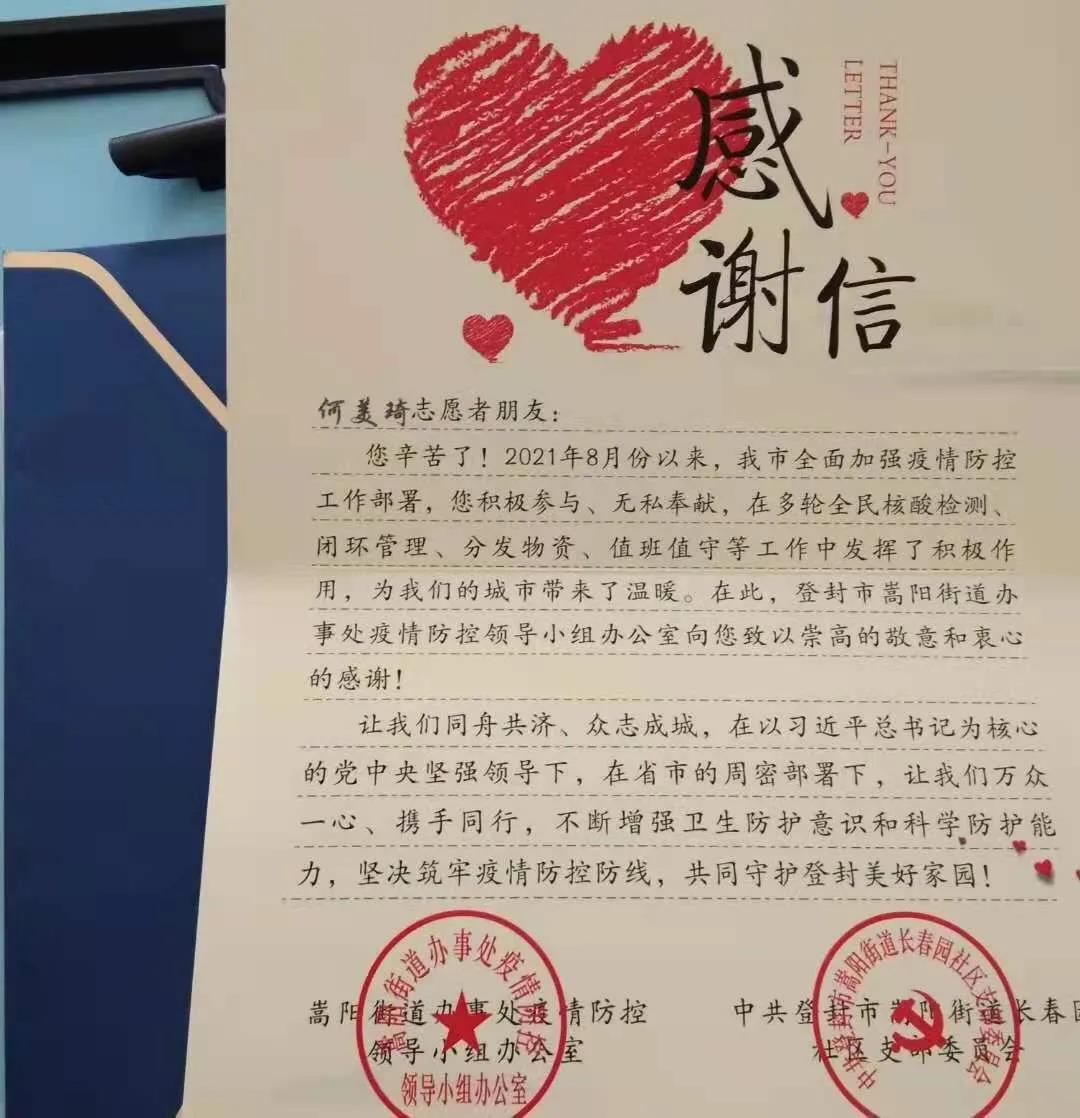 感谢信
THANK-YOU
LETTER
何美琦志愿者朋友：
您辛苦了！2021年8月份以来，我市全面加强疫情防控
工作部署，您积极参与、无私奉献，在多轮全民核酸检测、
闭环管理、分发物资、值班值守等工作中发挥了积极作
用，为我们的城市带来了温暖。在此，登封市嵩阳街道办
事处疫情防控领导小组办公室向您致以崇高的敬意和衷心
的感谢！
让我们同舟共济、众志成城，在以习近平总书记为核心
的党中央坚强领导下，在省市的周密部署下，让我们万众
一心、携手同行，不断增强卫生防护意识和科学防护能
力，坚决筑牢疫情防控防线，共同守护登封美好家园！
嵩阳街道办事处疫情防控
领导小组办公室
中共登封市嵩阳街道长春园
社区支部委员会
嵩阳街道办事处疫情防控
领导小组办公室
中共登封市嵩阳街道长春园社区支部委员会